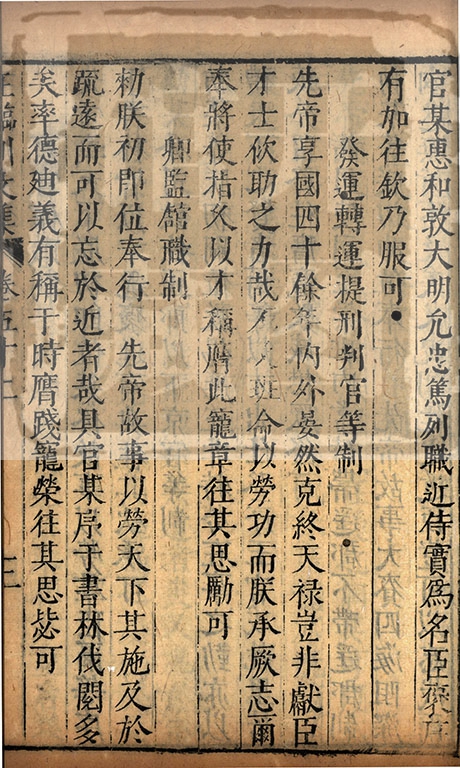 官某惠和敦大明允忠篤列職近侍實為名臣褒
有加往欽乃服可
發運轉運提刑判官等制
先帝享國四十餘年內外晏然克終天禄豈非獻臣
才士佽助之力哉 班命以勞功而朕承厥志爾
奉將使指久以才稱膺此寵章往其思勵可
卿監館職制
勑朕初即位奉行 先帝故事以勞天下其施及於
疏遠而可以忘於近者哉具官某序于書林伐閱多
矣率德廸義有稱于時膺踐寵榮往其思毖可
王臨川文集 卷五十二